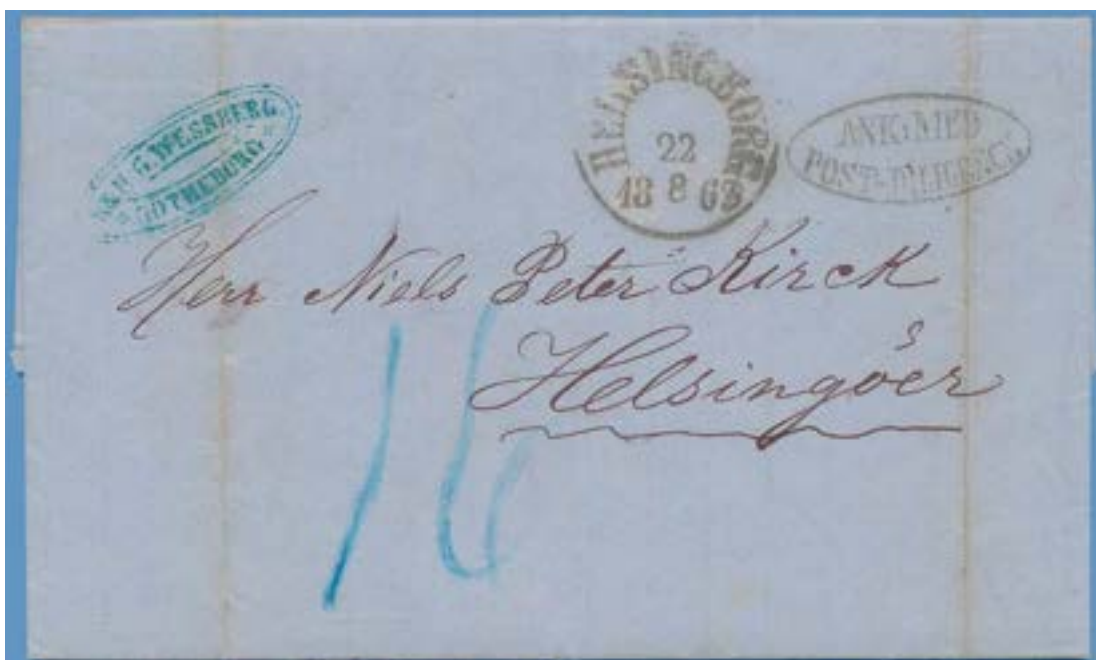 G. WESSBERG.
GÖTHEBORG
HELSINGBORG
22
18 8 63.
ANK: MED
POST-DILIGENC:
Herr Niels Peter Kirck
Helsingöer
16